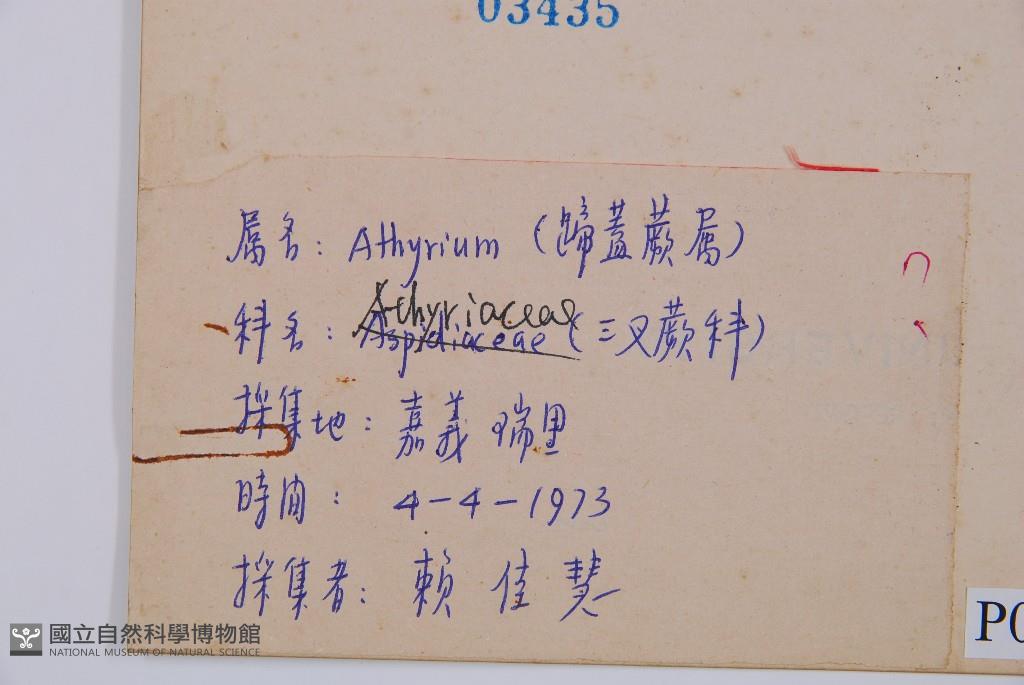 03435
属名: Athyrium (蹄蓋蕨属)
Athyriaceae
科名: Aspidiaceae (三叉蕨科)
採集地: 嘉義 瑞里
時間: 4-4-1973
採集者: 賴佳慧
P0
國立自然科學博物館
NATIONAL MUSEUM OF NATURAL SCIENCE